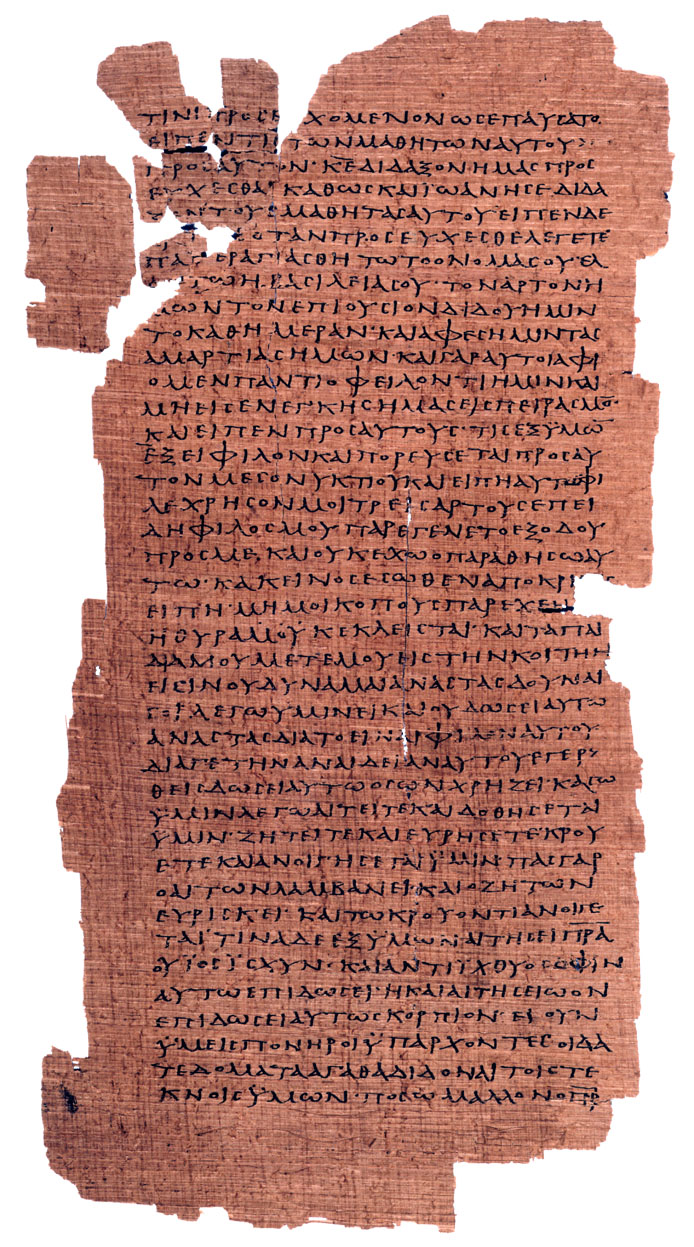 ΤΙΝΙ ΠΡΟϹΕ ΧΟΜΕΝΟΝ ΩϹΕΠΑΥϹΑΤΟ
ΕΙΠΕΝΤΙϹ ΤΩΝΜΑΘΗΤΩΝΑΥΤΟΥ
ΠΡΟϹΑΥΤΟΝ· Κ̅Ε̅ΔΙΔΑΞΟΝΗΜΑϹΠΡΟϹ
ΕΥΧΕϹΘΑΙ ΚΑΘΩϹΚΑΙΪΩΑΝΗϹΕΔΙΔΑ
ΤΟΥϹΜΑΘΗΤΑϹΑΥΤΟΥ ΕΙΠΕΝΔΕ
ΟΤΑΝΠΡΟϹΕΥΧΕϹΘΕΛΕΓΕΤΕ
ΠΑΤΕΡΑΓΙΑϹΘΗΤΩΤΟΟΝΟΜΑϹΟΥ·ΕΛ
ΤΩΗΒΑϹΙΛΕΙΑϹΟΥ· ΤΟΝΑΡΤΟΝΗ
ΜΩΝΤΟΝΕΠΙΟΥϹΙΟΝΔΙΔΟΥΗΜΙΝ
ΤΟΚΑΘΗΜΕΡΑΝ·ΚΑΙΑΦΕϹΗΜΙΝΤΑϹ
ΑΜΑΡΤΙΑϹΗΜΩΝ·ΚΑΙΓΑΡΑΥΤΟΙΑΦΙ
ΟΜΕΝΠΑΝΤΙΟΦΕΙΛΟΝΤΙΗΜΙΝΚΑΙ
ΜΗΕΙϹΕΝΕΓΚΗϹΗΜΑϹΕΙϹΠΕΙΡΑϹΜΟ̅·
ΚΑΙΕΙΠΕΝΠΡΟϹΑΥΤΟΥϹ·ΤΙϹΕΞΥΜΩ̅
ΕΞΕΙΦΙΛΟΝΚΑΙΠΟΡΕΥϹΕΤΑΙΠΡΟϹΑΥ
ΤΟΝΜΕϹΟΝΥΚΠΟΥΚΑΙΕΙΠΗΑΥΤΩΦΙ
ΛΕΧΡΗϹΟΝΜΟΙΤΡΕΙϹΑΡΤΟΥϹΕΠΕΙ
ΔΗΦΙΛΟϹΜΟΥΠΑΡΕΓΕΝΕΤΟΕΞΟΔΟΥ
ΠΡΟϹΜΕ ΚΑΙΟΥΚΕΧΩΟΠΑΡΑΘΗϹΩΑΥ
ΤΩ·ΚΑΚΕΙΝΟϹΕϹΩΘΕΝΑΠΟΚΡΙ
ΕΙΠΗ·ΜΗΜΟΙΚΟΠΟΥϹΠΑΡΕΧΕ
ΗΘΥΡΑΜΟΥΚΕΚΛΕΙϹΤΑΙ·ΚΑΙΤΑΠΑΙ
ΔΙΑΜΟΥΜΕΤΕΜΟΥΕΙϹΤΗΝΚΟΙΤΗΝ
ΕΙϹΙΝΟΥΔΥΝΑΜΑΙΑΝΑϹΤΑϹΔΟΥΝΑΙ
ϹΟΙ ΛΕΓΩΥΜΙΝΕΙΚΑΙΟΥΔΩϹΕΙΑΥΤΩ
ΑΝΑϹΤΑϹΔΙΑΤΟΕΙΝΑΙΦΙΛΟΝΑΥΤΟΥ
ΔΙΑΓΕΤΗΝΑΝΑΙΔΕΙΑΝΑΥΤΟΥΕΓΕΡ
ΘΕΙϹΔΩϹΕΙΑΥΤΩΟϹΩΝΧΡΗΖΕΙ·ΚΑΓΩ
ΫΜΙΝΛΕΓΩΑΙΤΕΙΤΕΚΑΙΔΟΘΗϹΕΤΑΙ
ΫΜΙΝ·ΖΗΤΕΙΤΕΚΑΙΕΥΡΗϹΕΤΕ·ΚΡΟΥ
ΕΤΕΚΑΙΑΝΟΙΓΗϹΕΤΑΙΫΜΙΝ·ΠΑϹΓΑΡ
ΟΑΙΤΩΝΛΑΜΒΑΝΕΙ·ΚΑΙΟΖΗΤΩΝ
ΕΥΡΙϹΚΕΙ· ΚΑΙΤΩΚΡΟΥΟΝΤΙΑΝΟΙΓΕ
ΤΑΙ·ΤΙΝΑΔΕΕΞΥΜΩΝΑΙΤΗϹΕΙΠ̅Ρ̅Α̅
ΟΥΪΟϹΪϹΧΥΝ·ΚΑΙΑΝΤΙΪΧΘΥΟϹΟΦΙΝ
ΑΥΤΩΕΠΙΔΩϹΕΙ·ΗΚΑΙΑΙΤΗϹΕΙΩΟΝ
ΕΠΙΔΩϹΕΙΑΥΤΩϹΚΟΡΠΙΟΝ·ΕΙΟΥΝ
ΫΜΕΙϹΠΟΝΗΡΟΙΫΠΑΡΧΟΝΤΕϹΟΙΔΑ
ΤΕΔΟΜΑΤΑΑΓΑΘΑΔΙΔΟΝΑΙΤΟΙϹΤΕ
ΚΝΟΙϹΫΜΩΝ·ΠΟϹΩΜΑΛΛΟΝΟΠ̅Η̅Ρ̅